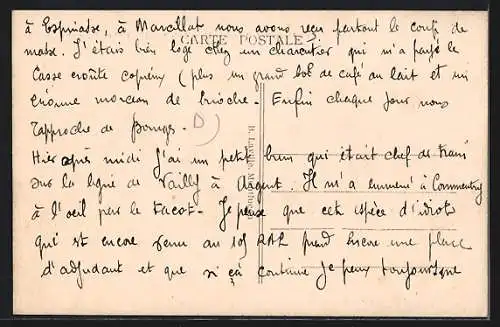 à Espinasse, à Marcillat nous avons reçu partout le coup de
CARTE POSTALE
matse. J'étais bien logé chez un charcutier qui m'a payé le
Casse croûte copieux (plus un grand bol de café au lait et un
énorme morceau de brioche. Enfin chaque jour nous
rapproche de Bourges.
D
Hier après midi j'ai un petit brun qui était chef de train
sur la ligne de Vailly à Argent. Il m'a emmené à Commentry
à l'oeil par le tacot. Je pense que cet espèce d'idiot
qui est encore venu au 105 RAL prend encore une place
d'adjudant et que si ça continue je peux toujours